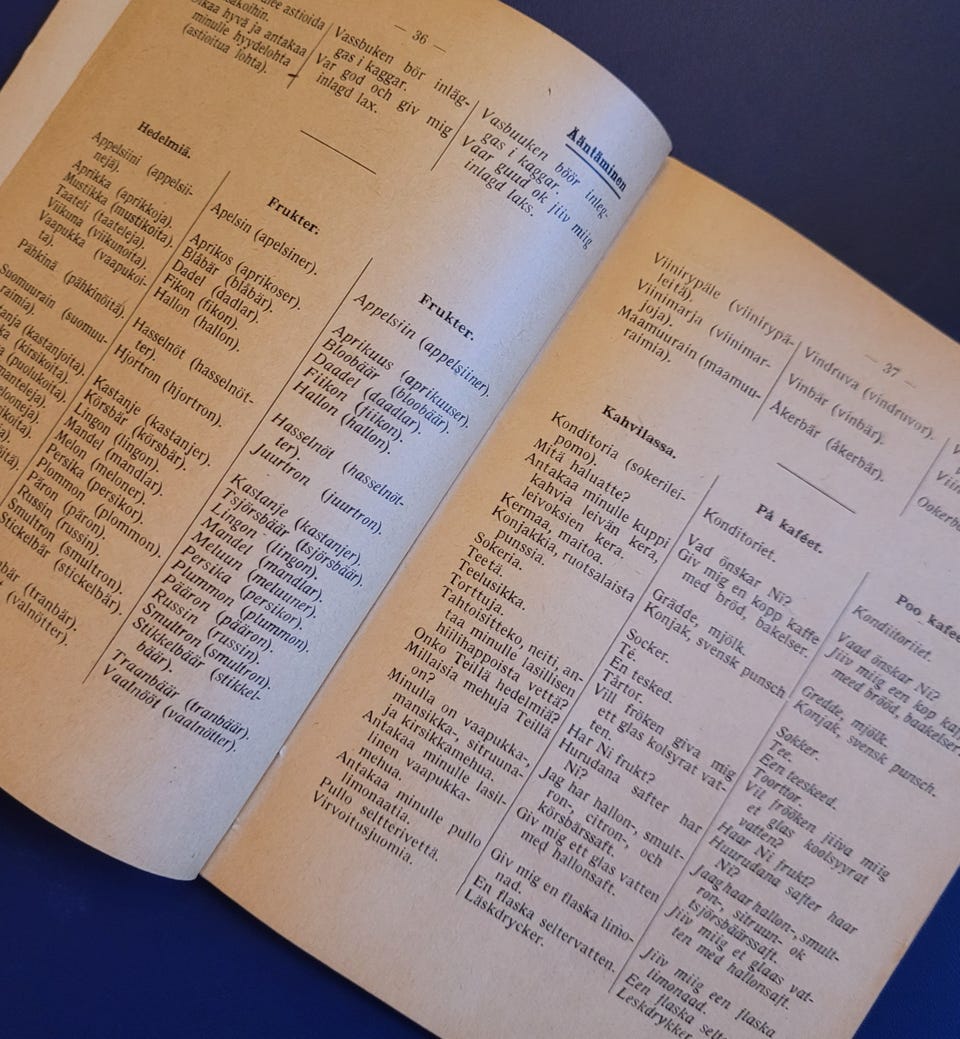 — 36 —
astioida
hyvä ja antakaa
minulle hyydelohta
(astioitua lohta).
Vassbuken bör inläg-
gas i kaggar.
Var god och giv mig
inlagd lax.
Ääntäminen
Vasbuuken böör inleg-
gas i kaggar.
Vaar guud ok jiiv miig
inlagd laks.
Hedelmiä.
Appelsiini (appelsii-
nejä).
Aprikka (aprikkoja).
Mustikka (mustikoita).
Taateli (taateleja).
Viikuna (viikunoita).
Vaapukka (vaapukoi-
ta).
Pähkinä (pähkinöitä).
Suomuurain (suomuu-
raimia).
(kastanjoita)
(kirsikoita).
(puolukoita).
Frukter.
Apelsin (apelsiner).
Aprikos (aprikoser).
Blåbär (blåbär).
Dadel (dadlar).
Fikon (fikon).
Hallon (hallon).
Hasselnöt (hasselnöt-
ter).
Hjortron (hjortron).
Kastanje (kastanjer).
Körsbär (körsbär).
Lingon (lingon).
Mandel (mandlar).
Melon (meloner).
Persika (persikor).
Plommon (plommon).
Päron (päron).
Russin (russin).
Smultron (smultron).
Stickelbär (stickelbär).
(tranbär).
(valnötter).
Frukter.
Appelsiin (appelsiiner).
Aprikuus (aprikuuser).
Bloobäär (bloobäär).
Daadel (daadlar).
Fiikon (fiikon).
Hallon (hallon).
Hasselnöt (hasselnöt-
ter).
Juurtron (juurtron).
Kastanje (kastanjer).
Tsjörsbäär (tsjörsbäär).
Lingon (lingon).
Mandel (mandlar).
Meluun (meluuner).
Persika (persikor).
Plummon (plummon).
Pääron (pääron).
Russin (russin).
Smultron (smultron).
Stikkelbäär (stikkel-
bäär).
Traanbäär (tranbäär).
Vaalnööt (vaalnötter).
— 37 —
Viinirypäle (viinirypä-
leitä).
Viinimarja (viinimar-
joja).
Maamuurain (maamuu-
raimia).
Vindruva (vindruvor).
Vinbär (vinbär).
Åkerbär (åkerbär).
Kahvilassa.
Konditoria (sokerilei-
pomo).
Mitä haluatte?
Antakaa minulle kuppi
kahvia leivän kera,
leivoksien kera.
Kermaa, maitoa.
Konjakkia, ruotsalaista
punssia.
Sokeria.
Teetä.
Teelusikka.
Torttuja.
Tahtoisitteko, neiti, an-
taa minulle lasillisen
hiilihappoista vettä?
Onko Teillä hedelmiä?
Millaisia mehuja Teillä
on?
Minulla on vaapukka-,
mansikka-, sitruuna-
ja kirsikkamehua.
Antakaa minulle lasil-
linen vaapukka-
mehua.
Antakaa minulle pullo
limonaatia.
Pullo seltterivettä.
Virvoitusjuomia.
På kaféet.
Konditoriet.
Vad önskar Ni?
Giv mig en kopp kaffe
med bröd, bakelser.
Grädde, mjölk.
Konjak, svensk punsch
Socker.
Te.
En tesked.
Tårtor.
Vill fröken giva mig
ett glas kolsyrat vat-
ten.
Har Ni frukt?
Hurudana safter har
Ni?
Jag har hallon-, smult-
ron-, citron-, och
körsbärssaft.
Giv mig ett glas vatten
med hallonsaft.
Giv mig en flaska limo-
nad.
En flaska seltervatten.
Läskdrycker.
Poo
Konditoriiet.
Vaad önskar Ni?
Jiiv miig een kop
meed brööd, baakelser
Gredde, mjölk.
Konjak, svensk punsch.
Sokker.
Tee.
Een teeskeed.
Toorttor.
Vil frööken jiiva miig
et glas koolsyyrat
vatten?
Haar Ni frukt?
Huurudana safter haar
Ni?
Jaag haar hallon-, smult-
ron-, sitruun- ok
tsjörsbäärssaft.
Jiiv miig et glaas vat-
ten med hallonsaft.
Jiiv miig een flaska
limonaad.
Een flaska
Leskdrykker